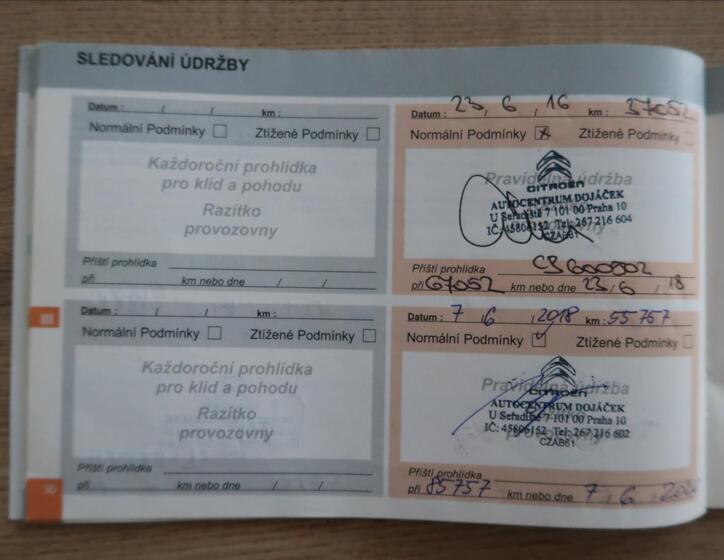 SLEDOVÁNÍ ÚDRŽBY
Datum : / / km :
Normální Podmínky Ztížené Podmínky
Každoroční prohlídka
pro klid a pohodu
Razítko
provozovny
Příští prohlídka
při km nebo dne / /
Datum : 23, 6, 16 km : 37052
Normální Podmínky x Ztížené Podmínky
Pravidelná údržba
CITROËN
AUTOCENTRUM DOJÁČEK
U Seřadiště 7 101 00 Praha 10
IČ: 45806152 Tel: 267 216 604
CZAB61
Příští prohlídka
při 67052 km nebo dne 23, 6, 18
III
Datum : / / km :
Normální Podmínky Ztížené Podmínky
Každoroční prohlídka
pro klid a pohodu
Razítko
provozovny
Příští prohlídka
při km nebo dne / /
Datum : 7, 6, 2018 km : 55757
Normální Podmínky Ztížené Podmínky
Pravidelná údržba
CITROËN
AUTOCENTRUM DOJÁČEK
U Seřadiště 7 101 00 Praha 10
IČ: 45806152 Tel: 267 216 602
CZAB61
Příští prohlídka
při 85757 km nebo dne 7, 6,